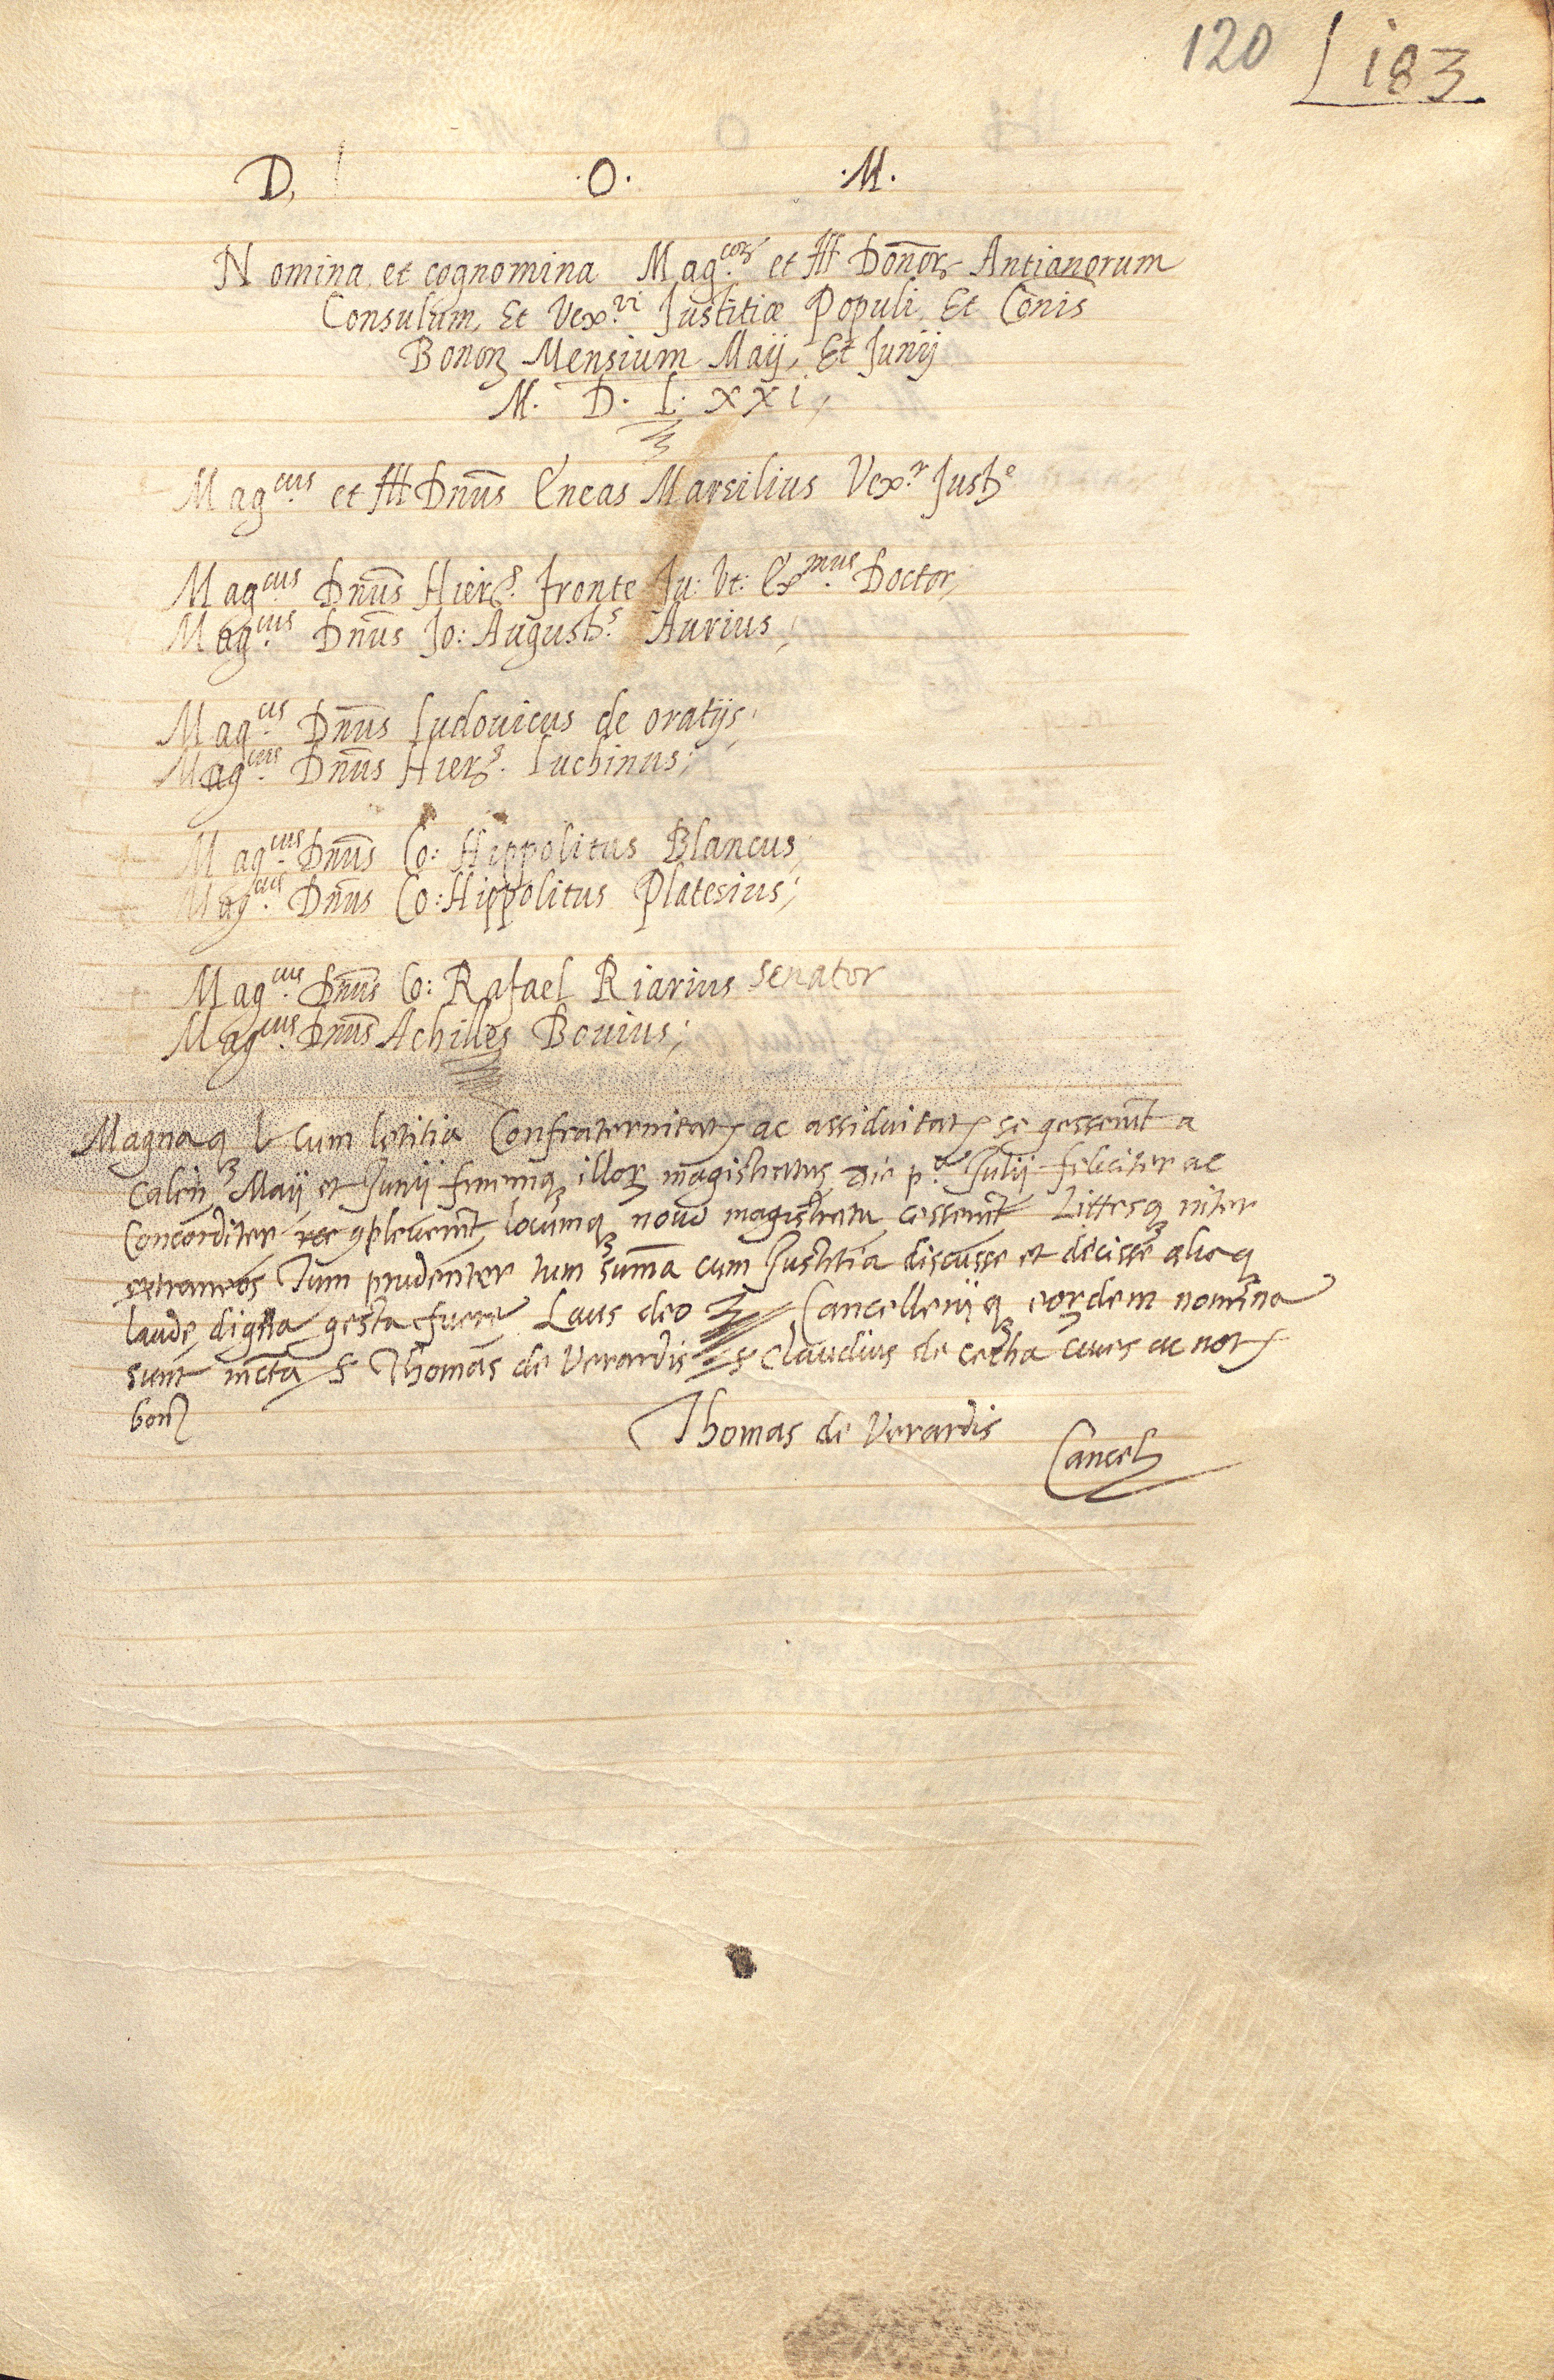 120 183
D. .O. .M.
Nomina, et cognomina Mag.coꝝ et Ill Donoꝝ Antianorum
Consulum, Et Vex.ri Justitiæ Populi, Et Cōnis
Bonoꝝ Mensium Maij, Et Junij
M. D. L. xxi,
Mag.cus et Ill Dnūs Eneas Marsilius Vex.r Just.e
Mag.cus Dnūs Hier.s fronte Ju: Vt: Ex.mus Doctor,
Mag.cus Dnūs Jo: August.s Aurius;
Mag.cus Dnūs Ludouicus de oratijs,
Mag.cus Dnūs Hier.s Luchinus;
Mag.cus Dnūs Co: Hippolitus Blancus,
Mag.cus Dnūs Co: Hippolitus Platesius;
Mag.cus Dnūs Co: Rafael Riarius Senator
Mag.cus Dnūs Achilles Bouius;
Magnaq cum letitia Confraternitatꝭ ac assiduitatꝭ se gesserūt a
Caleñ Maij et Junij finemqꝫ illoꝝ magistratus Die p.a Julij feliciter ac
Concorditer ꝯpleuerūt locumqꝫ nouo magistratu cesserūt Littesqꝫ niter
extraneos Tum prudenter tum sum̄a cum Justitia discusse et decisse aliaq
laude, digna gesta fuere Laus deo Cancellerijqꝫ eoꝝdem nomina
sunt S Thomas de Verardis S Claudius de cetha ciues ac notꝭ
bon
Thomas de Verardis
Cancel